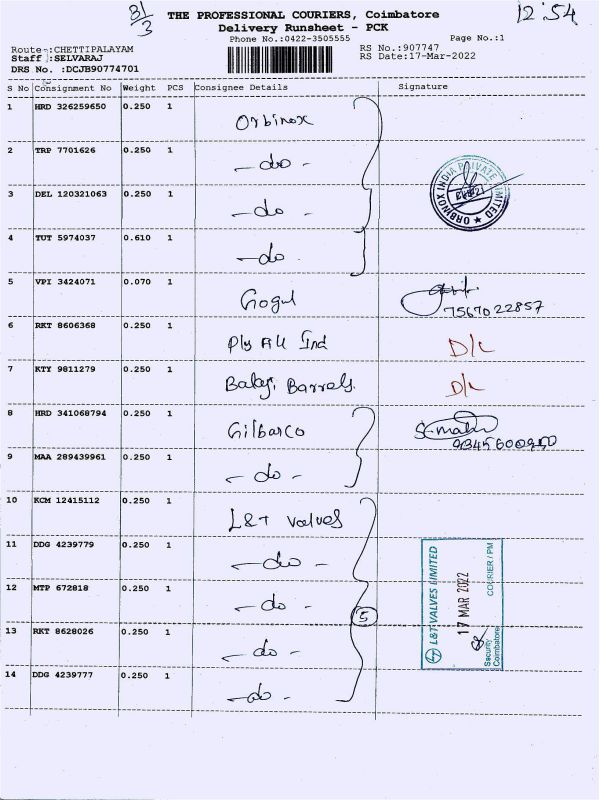 31/3
12:54
THE PROFESSIONAL COURIERS, Coimbatore
Delivery Runsheet - PCK
Phone No.:0422-3505555
Page No.:1
Route :CHETTIPALAYAM
Staff :SELVARAJ
DRS No. :DCJB90774701
RS No.:907747
RS Date:17-Mar-2022
S No Consignment No Weight PCS Consignee Details Signature
1 HRD 326259650 0.250 1 Orbinox
2 TRP 7701626 0.250 1 - do -
3 DEL 120321063 0.250 1 - do -
4 TUT 5974037 0.610 1 - do -
ORBINOX INDIA PRIVATE LIMITED
5 VPI 3424071 0.070 1 Gogul
7567022857
6 RKT 8606368 0.250 1 Ply All Ind D/L
7 KTY 9811279 0.250 1 Balaji Barrels. D/L
8 HRD 341068794 0.250 1 Gilbarco
9 MAA 289439961 0.250 1 - do -
10 KCM 12415112 0.250 1 L&T Valves
11 DDG 4239779 0.250 1 - do -
12 MTP 672818 0.250 1 - do -
5
13 RKT 8628026 0.250 1 - do -
14 DDG 4239777 0.250 1 - do -
L&T VALVES LIMITED
17 MAR 2022
COURIER / PM
Security
Coimbatore